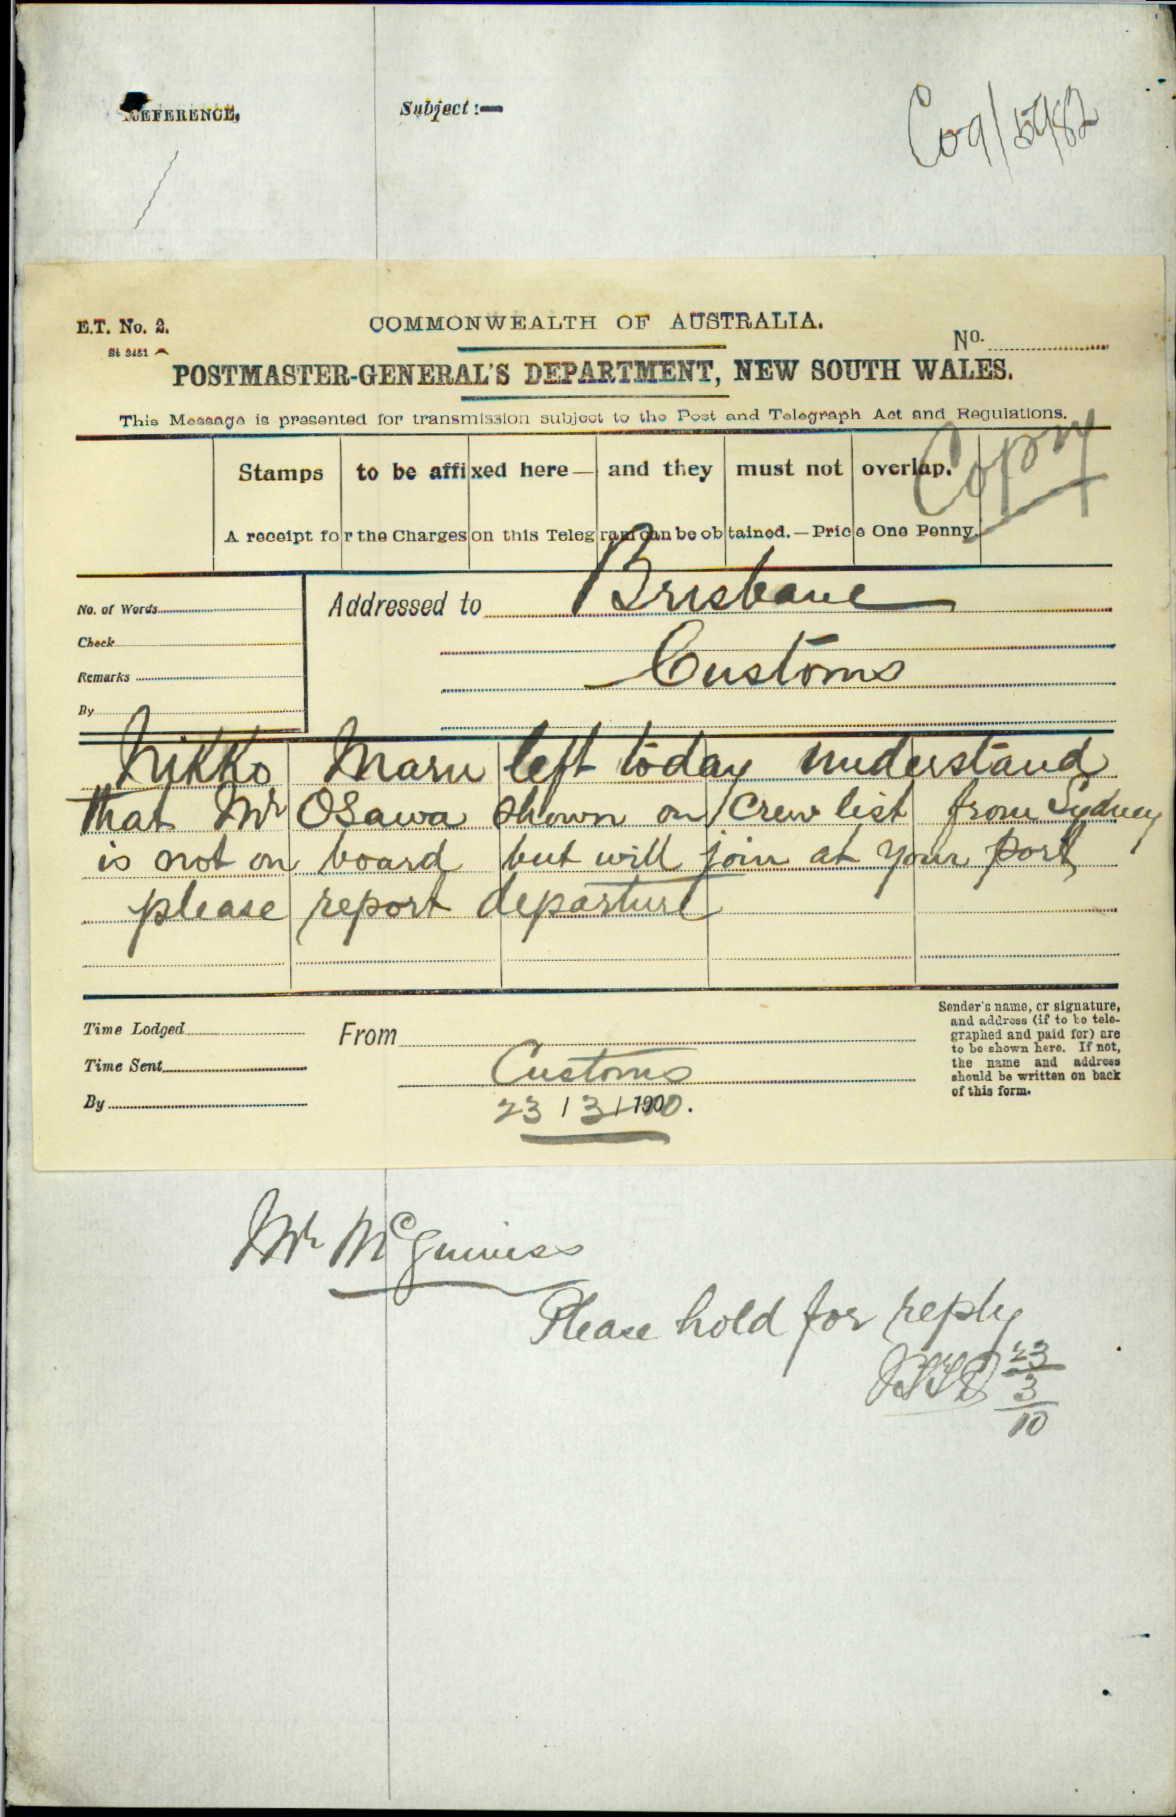 REFERENCE.
Subject:—
C09/5982
E.T. No. 2.
COMMONWEALTH OF AUSTRALIA.
St 3451
No.
POSTMASTER-GENERAL'S DEPARTMENT, NEW SOUTH WALES.
This Message is presented for transmission subject to the Post and Telegraph Act and Regulations.
Copy
Stamps to be affixed here— and they must not overlap.
A receipt for the Charges on this Telegram can be obtained.—Price One Penny.
No. of Words
Check
Remarks
By
Addressed to Brisbane
Customs
Nikko Maru left today understand
that Mr Osawa shown on crew list from Sydney
is not on board but will join at your port
please report departure
Time Lodged
Time Sent
By
From
Customs
23/3/1910.
Sender's name, or signature,
and address (if to be tele-
graphed and paid for) are
to be shown here. If not,
the name and address
should be written on back
of this form.
Mr McGuiness
Please hold for reply
23
3
10